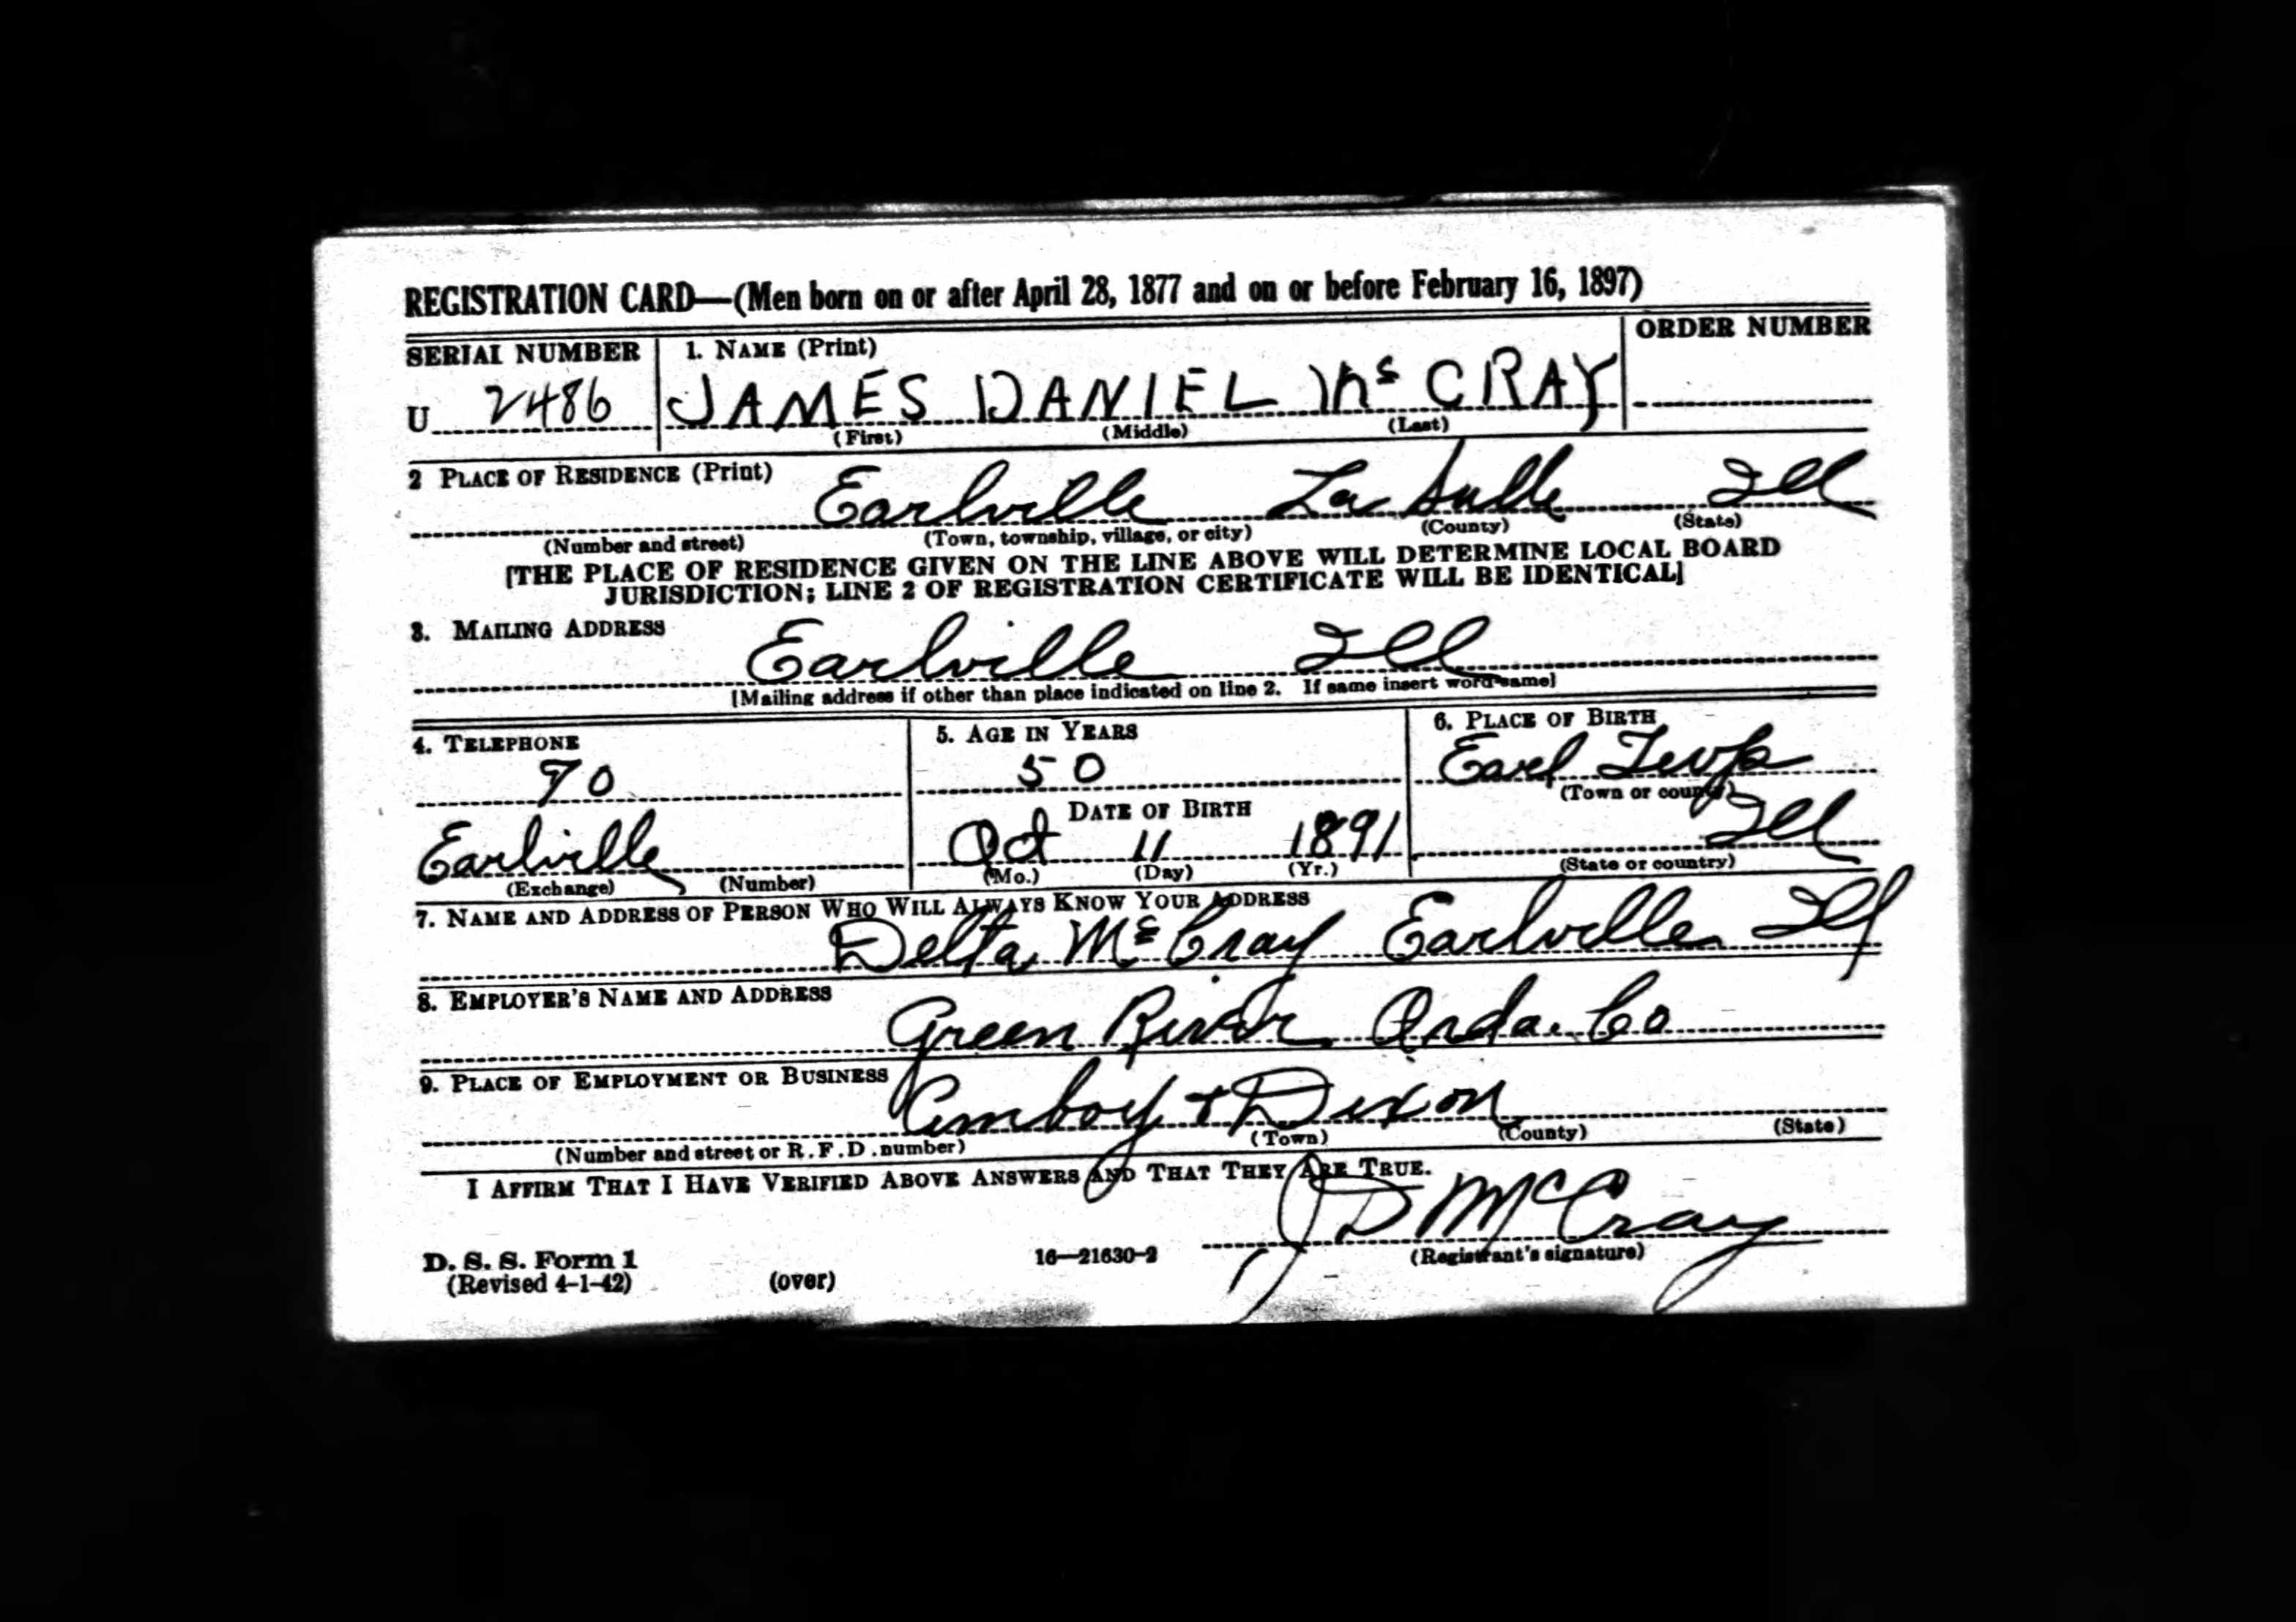 REGISTRATION CARD—(Men born on or after April 28, 1877 and on or before February 16, 1897)
SERIAL NUMBER 1. NAME (Print) ORDER NUMBER
U 2486 JAMES DANIEL Mc CRAY
(First) (Middle) (Last)
2 PLACE OF RESIDENCE (Print)
Earlville La Salle Ill
(Number and street) (Town, township, village, or city) (County) (State)
[THE PLACE OF RESIDENCE GIVEN ON THE LINE ABOVE WILL DETERMINE LOCAL BOARD
JURISDICTION; LINE 2 OF REGISTRATION CERTIFICATE WILL BE IDENTICAL]
3. MAILING ADDRESS
Earlville Ill
[Mailing address if other than place indicated on line 2. If same insert word same]
4. TELEPHONE 5. AGE IN YEARS 6. PLACE OF BIRTH
90 50 Earl Twp
(Town or county)
DATE OF BIRTH
Earlville Oct 11 1891 Ill
(Exchange) (Number) (Mo.) (Day) (Yr.) (State or country)
7. NAME AND ADDRESS OF PERSON WHO WILL ALWAYS KNOW YOUR ADDRESS
Delta McCray Earlville Ill
8. EMPLOYER'S NAME AND ADDRESS
Green River Orda. Co
9. PLACE OF EMPLOYMENT OR BUSINESS
Amboy + Dixon
(Number and street or R.F.D. number) (Town) (County) (State)
I AFFIRM THAT I HAVE VERIFIED ABOVE ANSWERS AND THAT THEY ARE TRUE.
J D McCray
D. S. S. Form 1 16—21630-2 (Registrant's signature)
(Revised 4-1-42) (over)